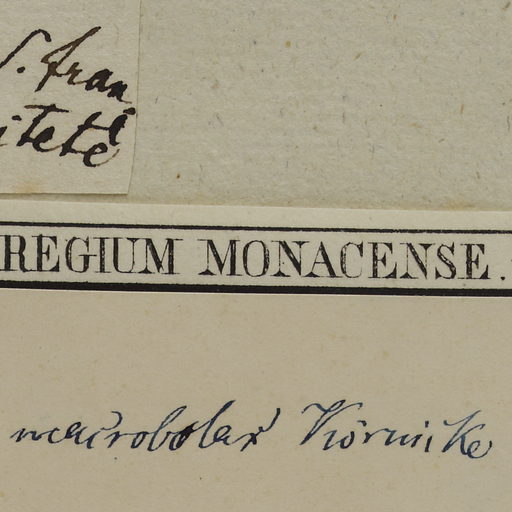 S. fran
REGIUM MONACENSE.
macrobolax Körnicke